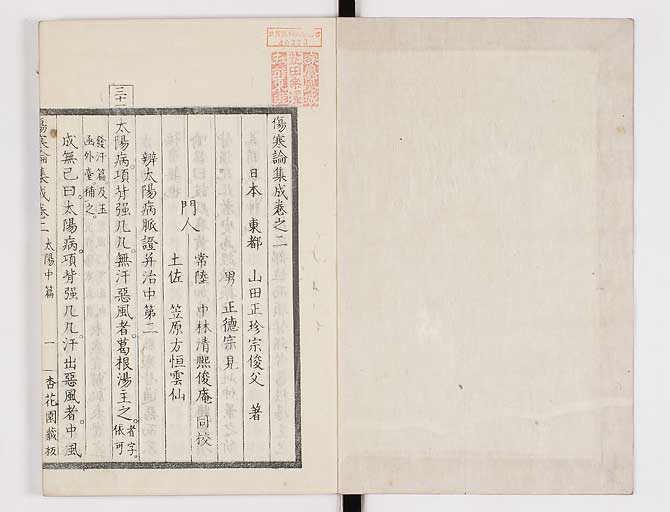 傷寒論集成卷之二
日本 東都 山田正珍宗俊父 著
男 正德宗見
門人
常陸 中林清熙俊庵 同校
土佐 笠原方恒雲仙
辨太陽病脈證并治中第二
三十一
太陽病。項背强几几。無汗惡風者。葛根湯主之。者字。依可
發汗篇及玉
函外臺補之。
成無已曰。太陽病。項背强几几。汗出惡風者。中風
傷寒論集成卷二 太陽中篇 一 杏花園藏板